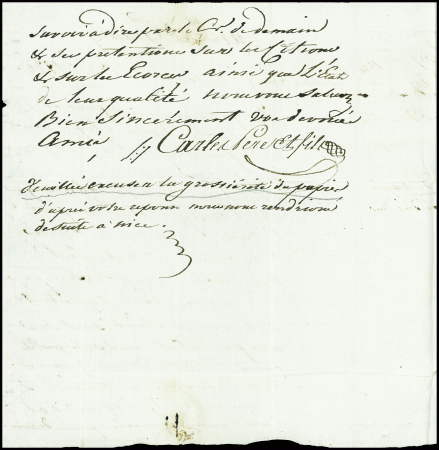 savoir à dire par le C.r de demain
& ses pretentions sur les Citrons
& sur les Ecorces ainsi que L'État
de leur qualité nous vous saluons
Bien Sincerement vos devoués
Amis
Carles Pere Et fils
Veuillez excuser la grossiereté du papier
d'après votre reponse nous nous rendrions
de suite à nice.